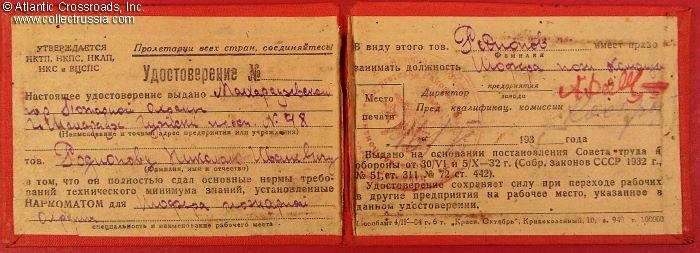 © Atlantic Crossroads, Inc.
www.collectrussia.com
УТВЕРЖДАЕТСЯ
НКТП, НКПС, НКАП,
НКС и ВЦСПС
Пролетарии всех стран, соединяйтесь!
Удостоверение №
Настоящее удостоверение выдано
№ 48
(Наименование и точный адрес предприятия или учреждения)
тов. Родионову Николаю
(Фамилия, имя и отчество)
в том, что он полностью сдал основные нормы требо-
ваний технического минимума знаний, установленные
НАРКОМАТОМ для пожарной
специальность и наименование рабочего места
В виду этого тов. Родионов имеет право
Фамилия
занимать должность пож команды
Место
печати
Директор предприятия
завода
Пред квалификац. комиссии
193 года
Выдано на основании постановления Совета труда и
обороны от 30/VI и 5/IX—32 г (Собр. законов СССР 1932 г.,
№ 51, ст. 311, № 72 ст. 442).
Удостоверение сохраняет силу при переходе рабочих
в другие предприятия на рабочее место, указанное в
данном удостоверении.
6 т. "Красн. Октябрь", Кривоколенный, 10, 100000